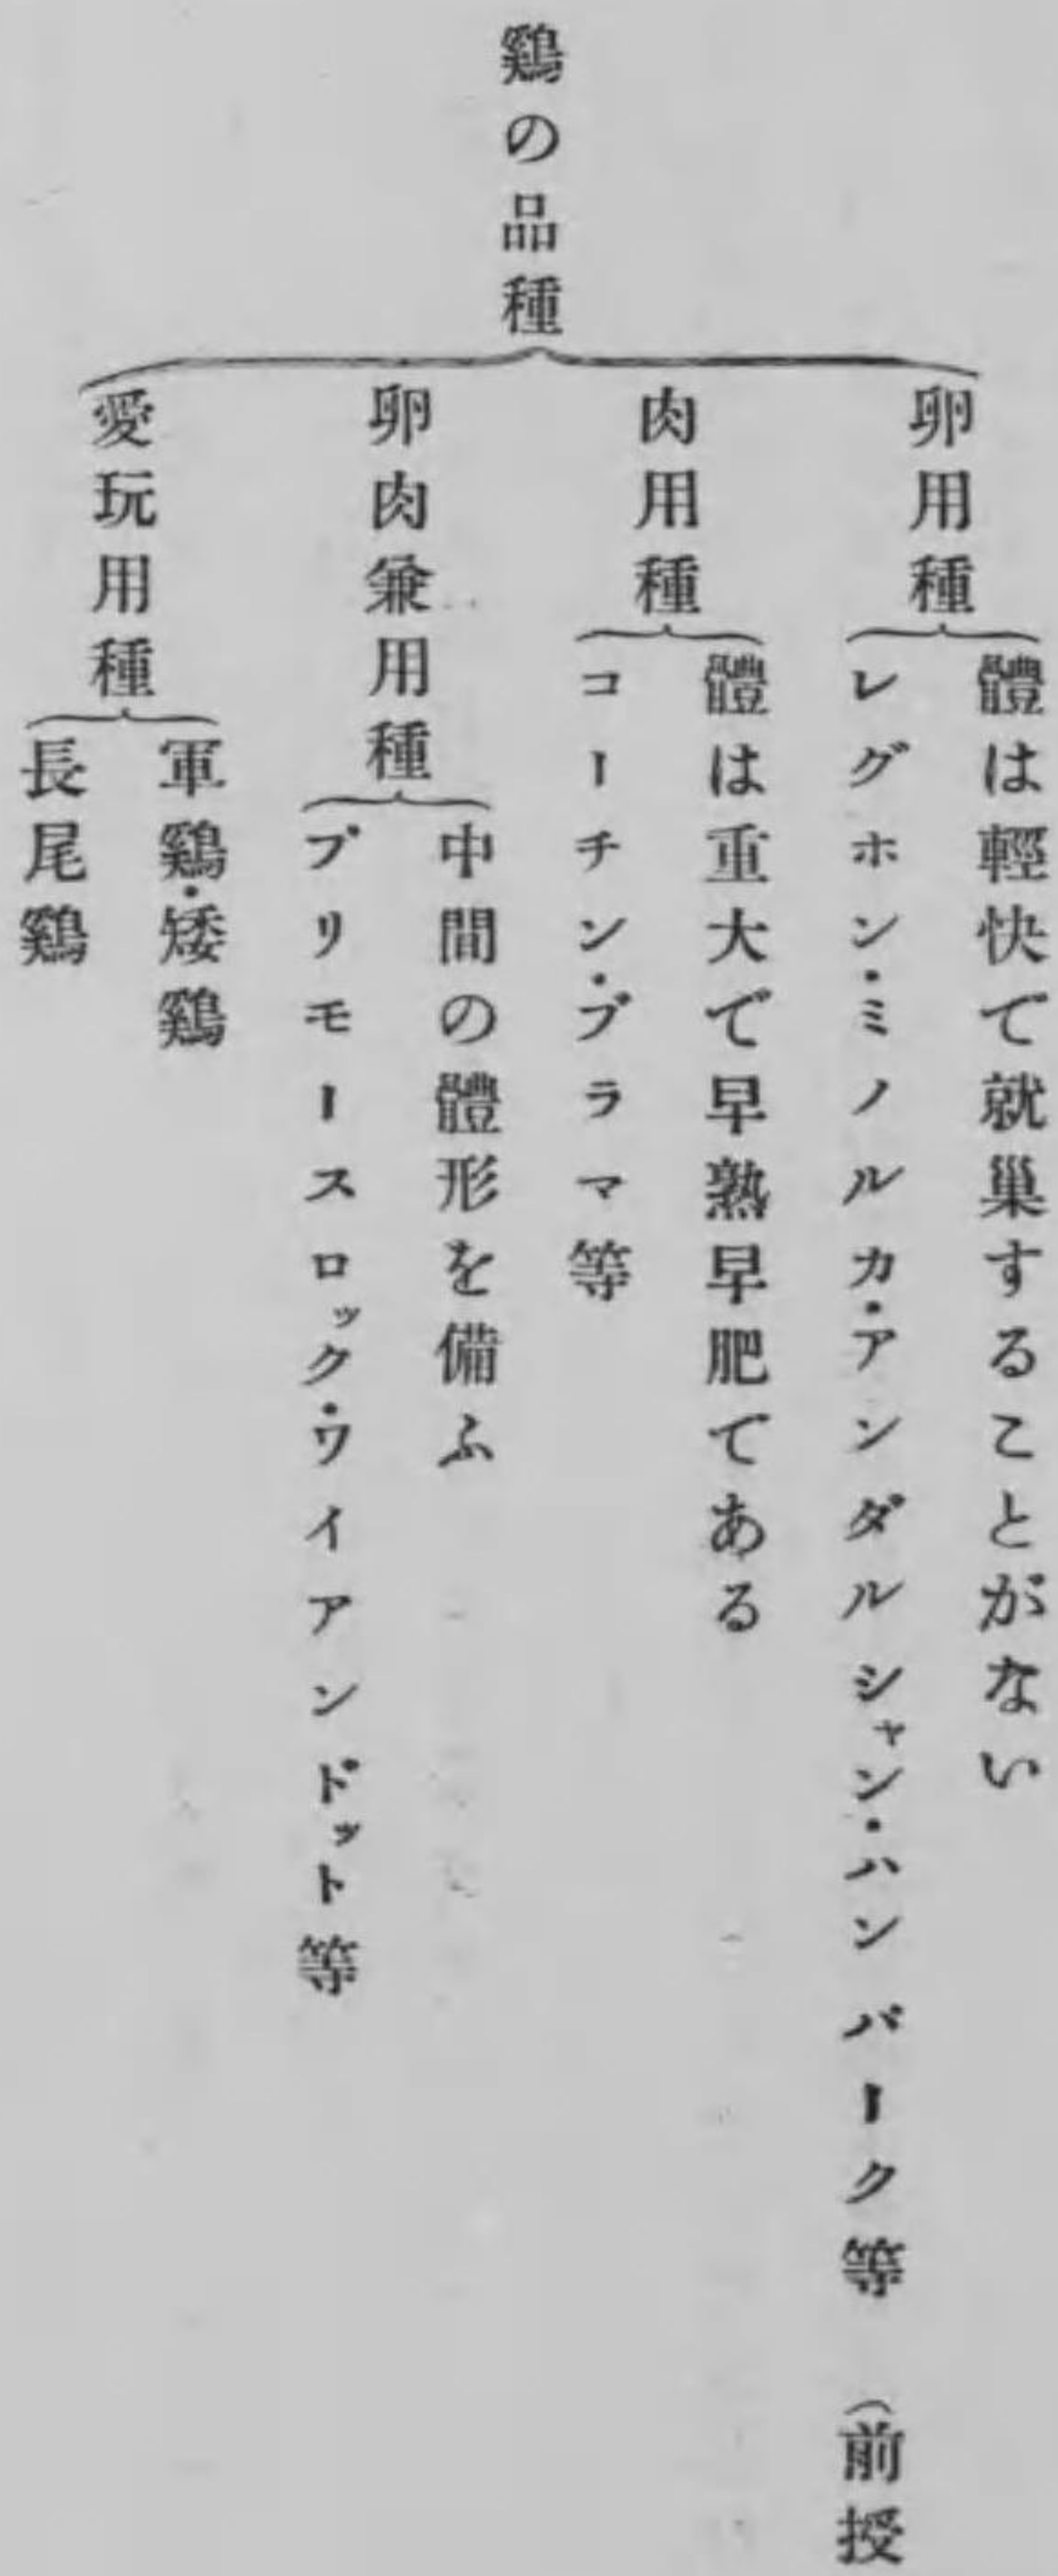 鷄の品種
卵用種
體は輕快で就巢することがない
レグホン・ミノルカ・アンダルシャン・ハンバーク等 (前授
肉用種
體は重大で早熟早肥である
コーチン・ブラマ等
卵肉兼用種
中間の體形を備ふ
プリモースロック・ワイアンドット等
愛玩用種
軍鷄・矮鷄
長尾鷄